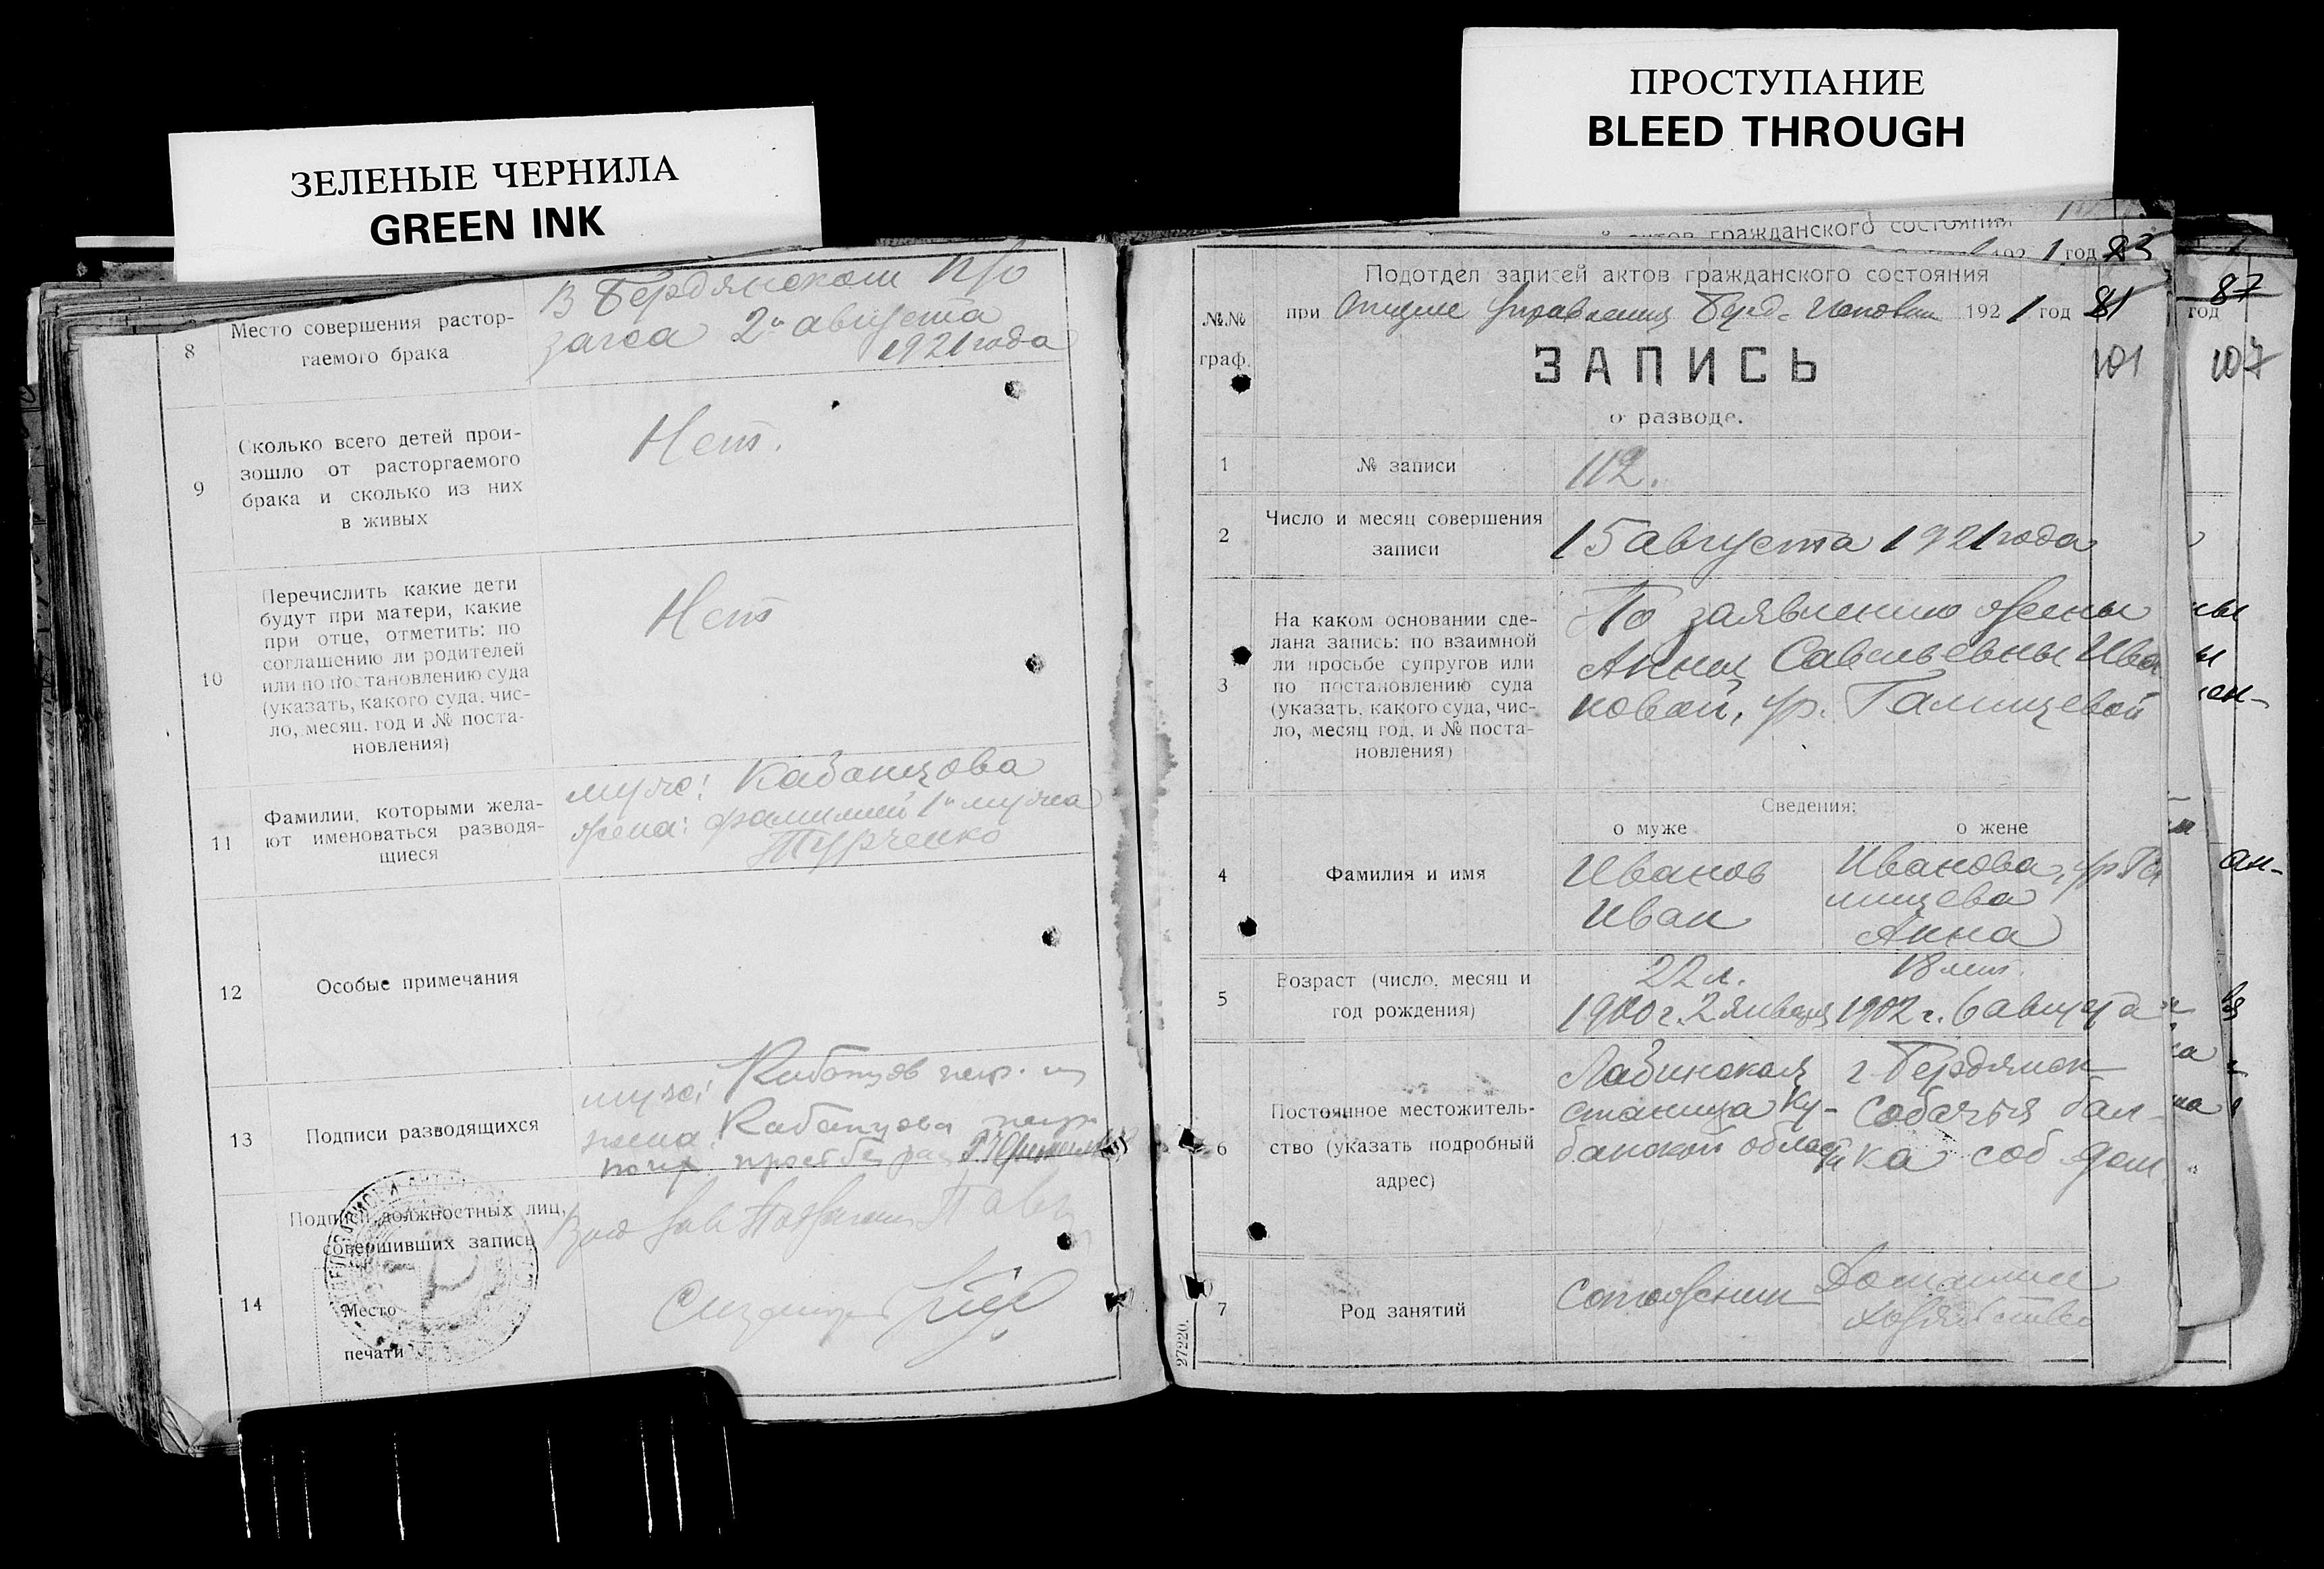 ЗЕЛЕНЫЕ ЧЕРНИЛА
GREEN INK
ПРОСТУПАНИЕ
BLEED THROUGH
8
Место совершения растор-
гаемого брака
В Бердянском п/о
загса 2го августа
1921 года
9
Сколько всего детей прои-
зошло от расторгаемого
брака и сколько из них
в живых
Нет.
10
Перечислить какие дети
будут при матери, какие
при отце, отметить: по
соглашению ли родителей
или по постановлению суда
(указать, какого суда, чис-
ло, месяц, год и № поста-
новления)
Нет
11
Фамилии, которыми жела-
ют именоваться разводя-
щиеся
муж: Кабанцова
жена: фамилией 1го мужа
Турченко
12
Особые примечания
13
Подписи разводящихся
муж: Кабанцов негр.
жена: Кабанцова негр.
14
Подписи должностных лиц,
совершивших запись
Место
печати
актов гражданского состояния
1921 год 83
Подотдел записей актов гражданского состояния
№№
граф.
при Отделе Управления Берд. Исполком 1921 год 81
ЗАПИСЬ
101
о разводе.
1
№ записи
112.
2
Число и месяц совершения
записи
15 августа 1921 года
3
На каком основании сде-
лана запись: по взаимной
ли просьбе супругов или
по постановлению суда
(указать, какого суда, чис-
ло, месяц год, и № поста-
новления)
По заявлению жены
Анны Савельевны Ива
новой, ур. Галицевой
Сведения:
о муже
о жене
4
Фамилия и имя
Иванов
Иван
Иванова, ур. Га
лицева
Анна
5
Возраст (число, месяц и
год рождения)
22 л.
1900 г. 2 января
18 лет.
1902 г. 6 августа
6
Постоянное местожитель-
ство (указать подробный
адрес)
Лабинская
станица Ку-
банской области
г. Бердянск
Собачья бал-
ка соб дом
7
Род занятий
Домашнее
хозяйство
27220.
год
87
107